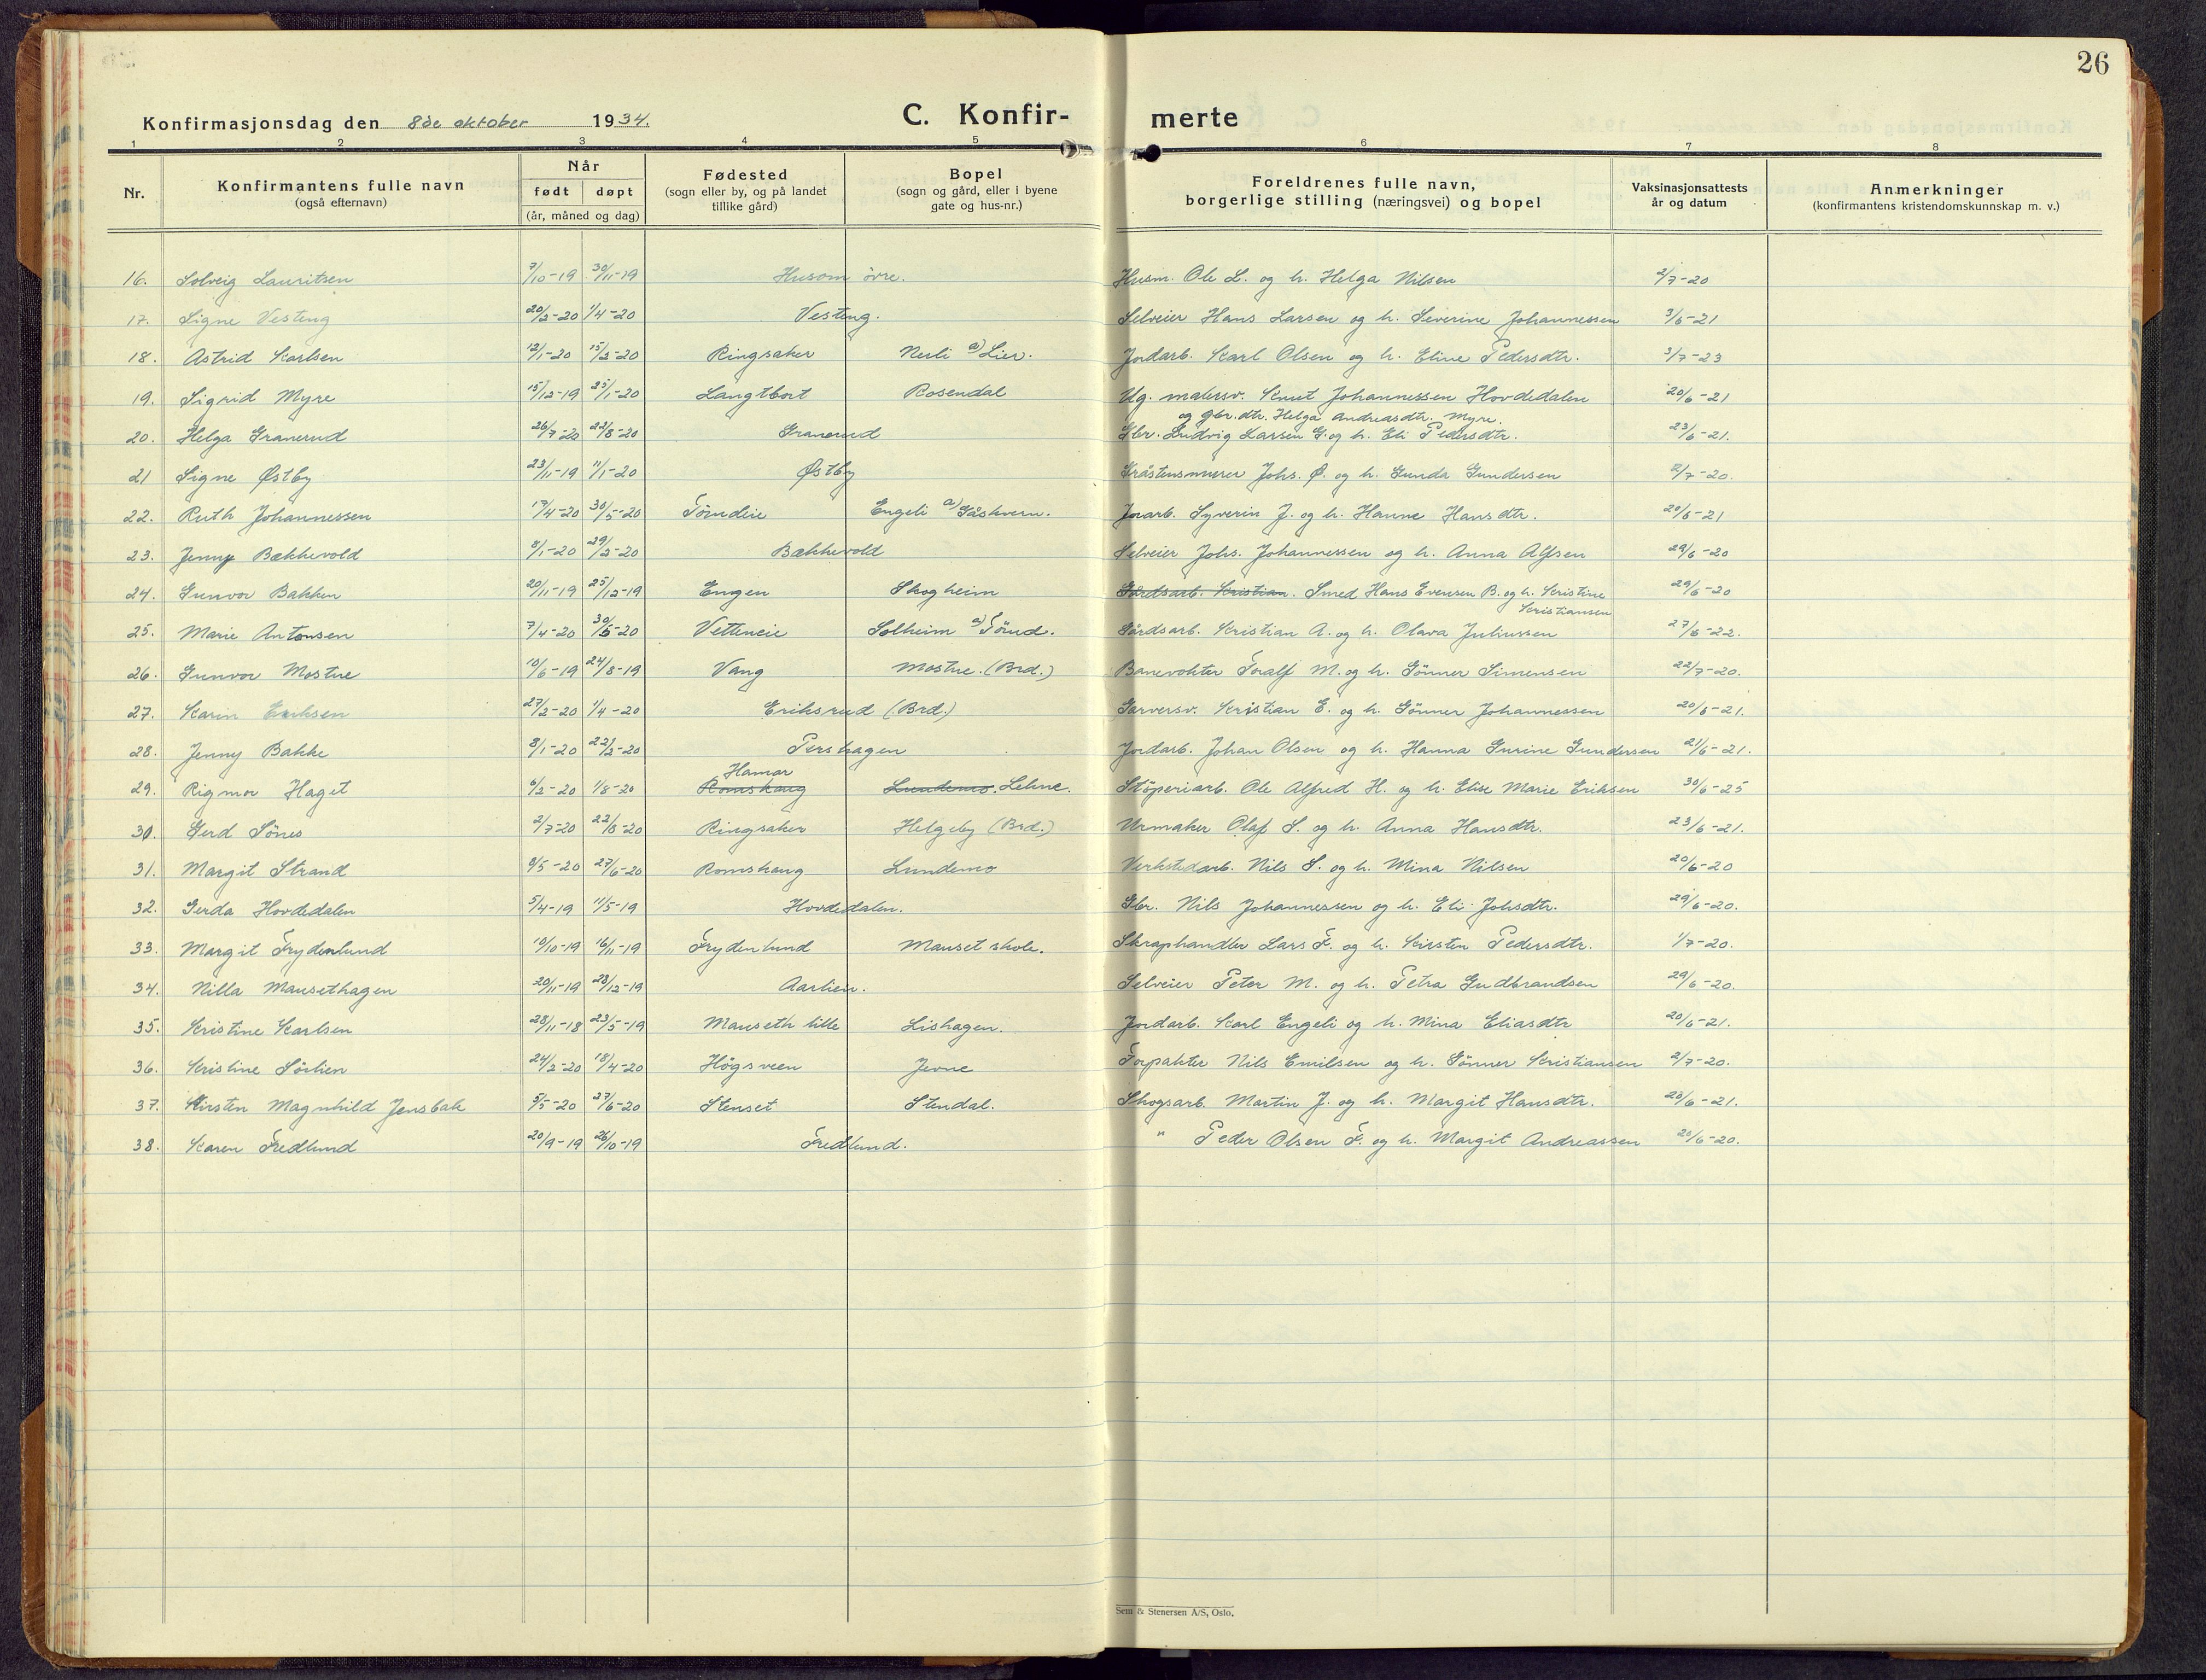 26
Konfirmasjonsdag den 8de oktober 1934.
C. Konfir- merte
1 2 3 4 5 6 7 8
Nr.
Konfirmantens fulle navn
(også efternavn)
Når
født døpt
(år, måned og dag)
Fødested
(sogn eller by, og på landet
tillike gård)
Bopel
(sogn og gård, eller i byene
gate og hus-nr.)
Foreldrenes fulle navn,
borgerlige stilling (næringsvei) og bopel
Vaksinasjonsattests
år og datum
Anmerkninger
(konfirmantens kristendomskunnskap m. v.)
16. Solveig Lauritsen 7/10-19 30/11-19 Husom övre. Husm. Ole L. og h. Helga Nilsen 2/7-20
17. Signe Vesteng 20/2-20 1/4-20 Vesteng. Selveier Hans Larsen og h. Severine Johannessen 3/6-21
18. Astrid Karlsen 12/1-20 15/2-20 Ringsaker Nerli a) Lier. Jordarb. Karl Olsen og h. Eline Pedersdtr. 3/7-23
19. Sigrid Myre 15/12-19 25/1-20 Langtbort Rosendal Ug. malersv. Knut Johannessen Hovdedalen 20/6-21
og gbr. dtr. Helga Andreasdtr. Myre.
20. Helga Granerud 26/7-20 22/8-20 Granerud Gbr. Ludvig Larsen G. og h. Eli Pedersdtr. 23/6-21.
21 Signe Østby 23/11-19 11/1-20 Østby Gråstensmurer Johs. Ø. og h. Gunda Gundersen 2/7-20.
22. Ruth Johannessen 17/4-20 30/5-20 Törudeie Engeli a) Gåskvern. Jorarb. Syverin J. og h. Hanne Hansdtr. 20/6-21
23. Jenny Bækkevold 8/1-20 29/2-20 Bækkevold Selveier Johs. Johannessen og h. Anna Alfsen 29/6-20
24. Gunvor Bakken 20/11-19 25/12-19 Engen Skogheim Gårdsarb. Kristian. Smed Hans Evensen B. og h. Kristine 29/6-20
Kristiansen
25. Marie Antonsen 7/4-20 30/5-20 Vetteneie Solheim a) Törud. Gårdsarb. Kristian A. og h. Olava Juliussen 27/6-22.
26. Gunvor Mostue 10/6-19 24/8-19 Vang Mostue. (Brd.) Banevokter Toralf M. og h. Gönner Simensen 22/7-20.
27. Karin Eriksen 27/2-20 1/4-20 Eriksrud (Brd.) Garversv. Kristian E. og h. Gönner Johannessen 20/6-21.
28. Jenny Bakke 8/1-20 22/2-20 Pershagen Jordarb. Johan Olsen og h. Hanna Gurine Gundersen 21/6-21.
Hamar
29. Rigmor Haget 6/2-20 1/8-20 Romskaug Lundemo. Lehne. Stöperiarb. Ole Alfred H. og h. Elise Marie Eriksen 30/6-25
30. Gerd Sönes 2/7-20 22/8-20 Ringsaker Helgeby (Brd.) Urmaker Olaf S. og h. Anna Hansdtr. 23/6-21.
31. Margit Strand 9/5-20 27/6-20 Romskaug Lundemo Verkstedarb. Nils S. og h. Mina Nilsen 20/6-20
32. Gerda Hovdedalen 5/4-19 11/5-19 Hovdedalen. Gbr. Nils Johannessen og h. Eli Johsdtr. 29/6-20.
33. Margit Frydenlund 10/10-19 16/11-19 Frydenlund Mauset skole. Skraphandler Lars F. og h. Kirsten Pedersdtr. 1/7-20.
34. Nilla Mausethagen 20/11-19 28/12-19 Aarlien. Selveier Peter M. og h. Petra Gudbrandsen 29/6-20.
35. Kristine Karlsen 28/11-18 23/5-19 Mauseth lille Lishagen. Jordarb. Karl Engeli og h. Mina Eliasdtr 20/6-21.
36. Kristine Sörlien 24/2-20 18/4-20 Högsveen Jevne Forpakter Nils Emilsen og h. Gönner Kristiansen 2/7-20.
37. Kirsten Magnhild Jensbak 5/5-20 27/6-20 Stenset Stendal. Skogsarb. Martin J. og h. Margit Hansdtr. 23/6-21.
38. Karen Fredlund 20/9-19 26/10-19 Fredlund. " Peder Olsen F. og h. Margit Andreassen 20/6-20.
Sem & Stenersen A/S, Oslo.